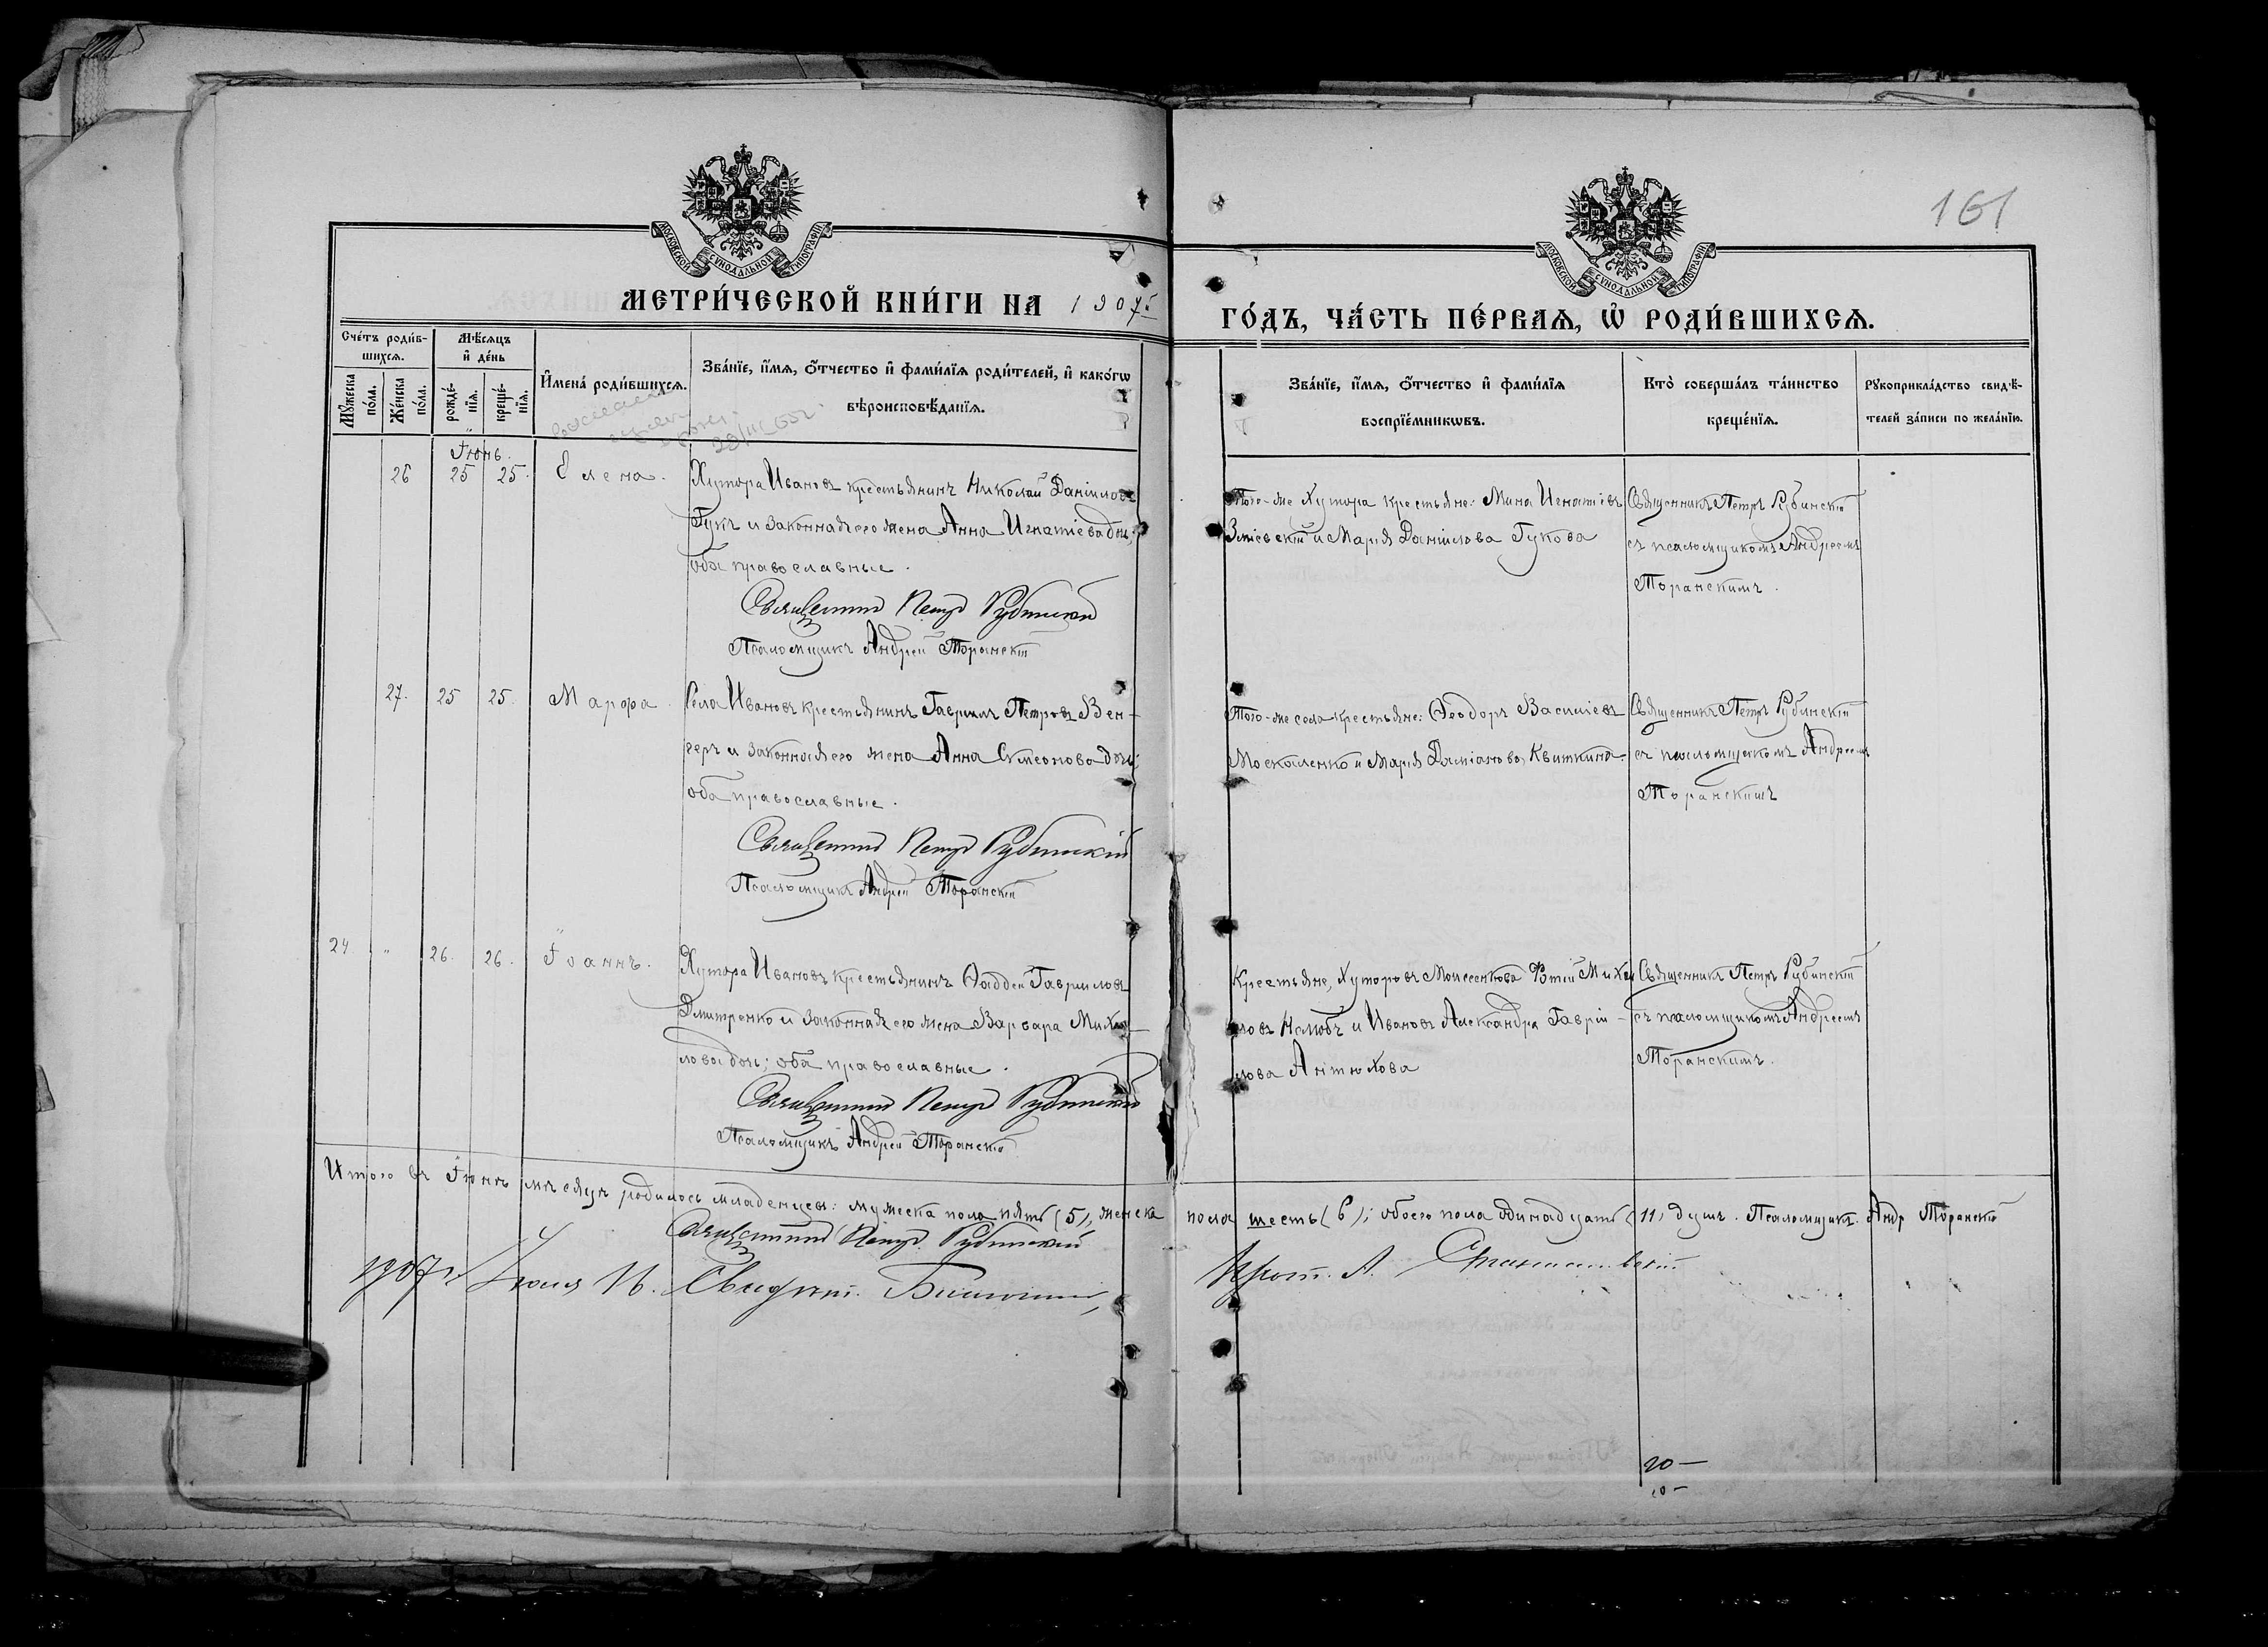 161
МОСКОВСКОЙ СУНОДАЛЬНОЙ ТИПОГРАФІИ
МОСКОВСКОЙ СУНОДАЛЬНОЙ ТИПОГРАФІИ
МЕТРИ́ЧЕСКОЙ КНИ́ГИ НА 1907й
ГО́ДЪ, ЧА́СТЬ ПЕ́РВАЯ, Ѡ РОДИ́ВШИХСЯ.
Сче́тъ роди́в-
шихся.
Мѣ́сяцъ
и де́нь
Му́жеска
по́ла.
Же́нска
по́ла.
рожде́-
нїя.
креще́-
нїя.
Имена́ роди́вшихся.
Зва́нїе, и́мя, о́тчество и фами́лїя роди́телей, и како́гѡ
вѣроисповѣ́данїя.
Зва́нїе, и́мя, о́тчество и фами́лїя
воспрїе́мникѡвъ.
Кто̀ соверша́лъ та́инство
креще́нїя.
Рукоприкла́дство свидѣ́-
телей за́писи по жела́нїю.
Іюнь.
26 25 25. Елена.
Хутора Ивановъ крестьянинъ Николай Даніиловъ
Гукъ и законная его жена Анна Игнатіева доч;
оба православные.
Священник Петр Рубинский
Псаломщикъ Андрей Торанскій
Того-же Хутора крестьяне: Мина Игнатіевъ
Зміевскій и Марія Даніилова Гукова
Священникъ Петръ Рубинскій
съ псаломщикомъ Андреемъ
Торанскимъ.
27. 25 25. Марфа
Села Ивановъ крестьянинъ Гавріилъ Петровъ Вен-
геръ и законная его жена Анна Симеонова доч;
оба православные.
Священник Петр Рубинскій
Псаломщикъ Андрей Торанскій
Того-же села крестьяне: Ѳеодоръ Василіевъ
Москаленко и Марія Даміанова Квиткина.
Священникъ Петръ Рубинскій
съ псаломщикомъ Андреемъ
Торанскимъ
24. " 26. 26. Іоаннъ.
Хутора Ивановъ крестьянинъ Ѳаддей Гавриловъ
Дмитренко и законная его жена Варвара Михаи-
лова доч; оба православные.
Священник Петр Рубинский
Псаломщикъ Андрей Торанскій
Крестьяне, Хуторовъ Моисеенкова Фотій Михаи
ловъ Нелюбъ и Ивановъ Александра Гавріи-
лова Антюхова
Священникъ Петръ Рубинскій
съ псаломщикомъ Андреемъ
Торанскимъ.
Итого въ Іюнѣ мѣсяцѣ родилось младенцевъ: мужеска пола пять (5), женска пола шесть (6); обоего пола одинадцать (11) душъ. Псаломщикъ Андр Торанскій
Священник Петр. Рубинский
1907 г. Іюля 16. Прот. А.
20 —